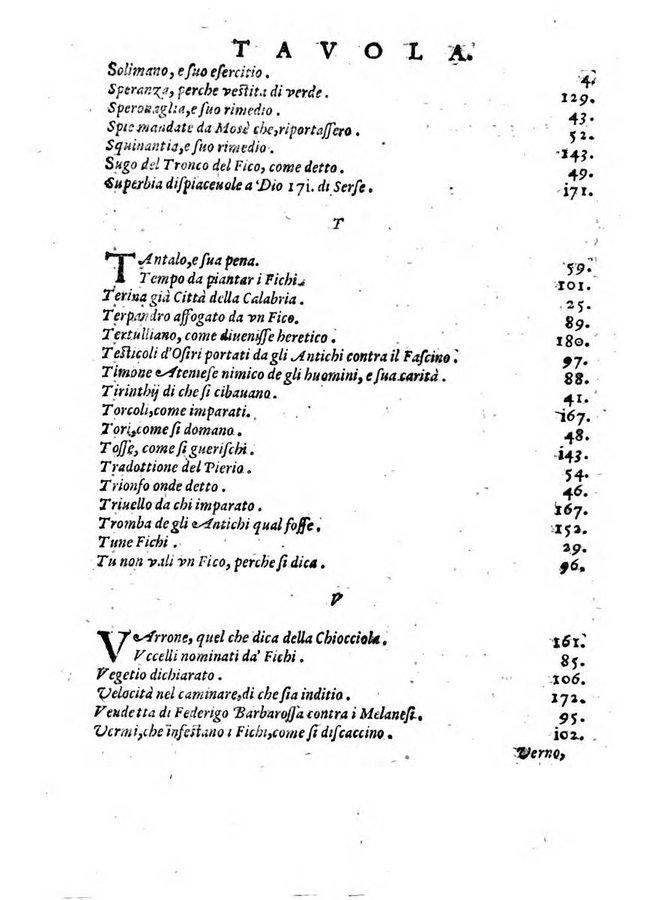 TAVOLA.
Solimano, e ſuo eſercitio. 4.
Speranza, perche veſtita di verde. 129.
Speronaglia, e ſuo rimedio. 43.
Spie mandate da Mosè che, riportaſſero. 52.
Squinantia, e ſuo rimedio. 143.
Sugo del Tronco del Fico, come detto. 49.
Superbia diſpiaceuole a Dio 171. di Serſe. 171.
T
TAntalo, e ſua pena. 59.
Tempo da piantar i Fichi. 101.
Terina già Città della Calabria. 25.
Terpandro affogato da vn Fico. 89.
Tertulliano, come diueniſſe heretico. 180.
Teſticoli d'Oſiri portati da gli Antichi contra il Faſcino. 97.
Timone Atenieſe nimico de gli huomini, e ſua carità. 88.
Tirinthij di che ſi cibauano. 41.
Torcoli, come imparati. 167.
Tori, come ſi domano. 48.
Toſſe, come ſi gueriſchi. 143.
Tradottione del Pierio. 54.
Trionfo onde detto. 46.
Triuello da chi imparato. 167.
Tromba de gli Antichi qual foſſe. 152.
Tune Fichi. 29.
Tu non vali vn Fico, perche ſi dica. 96.
V
VArrone, quel che dica della Chiocciola. 161.
Vccelli nominati da' Fichi. 85.
Vegetio dichiarato. 106.
Velocità nel caminare, di che ſia inditio. 172.
Vendetta di Federigo Barbaroſſa contra i Melaneſi. 95.
Vermi, che infeſtano i Fichi, come ſi diſcaccino. 102.
Verno,